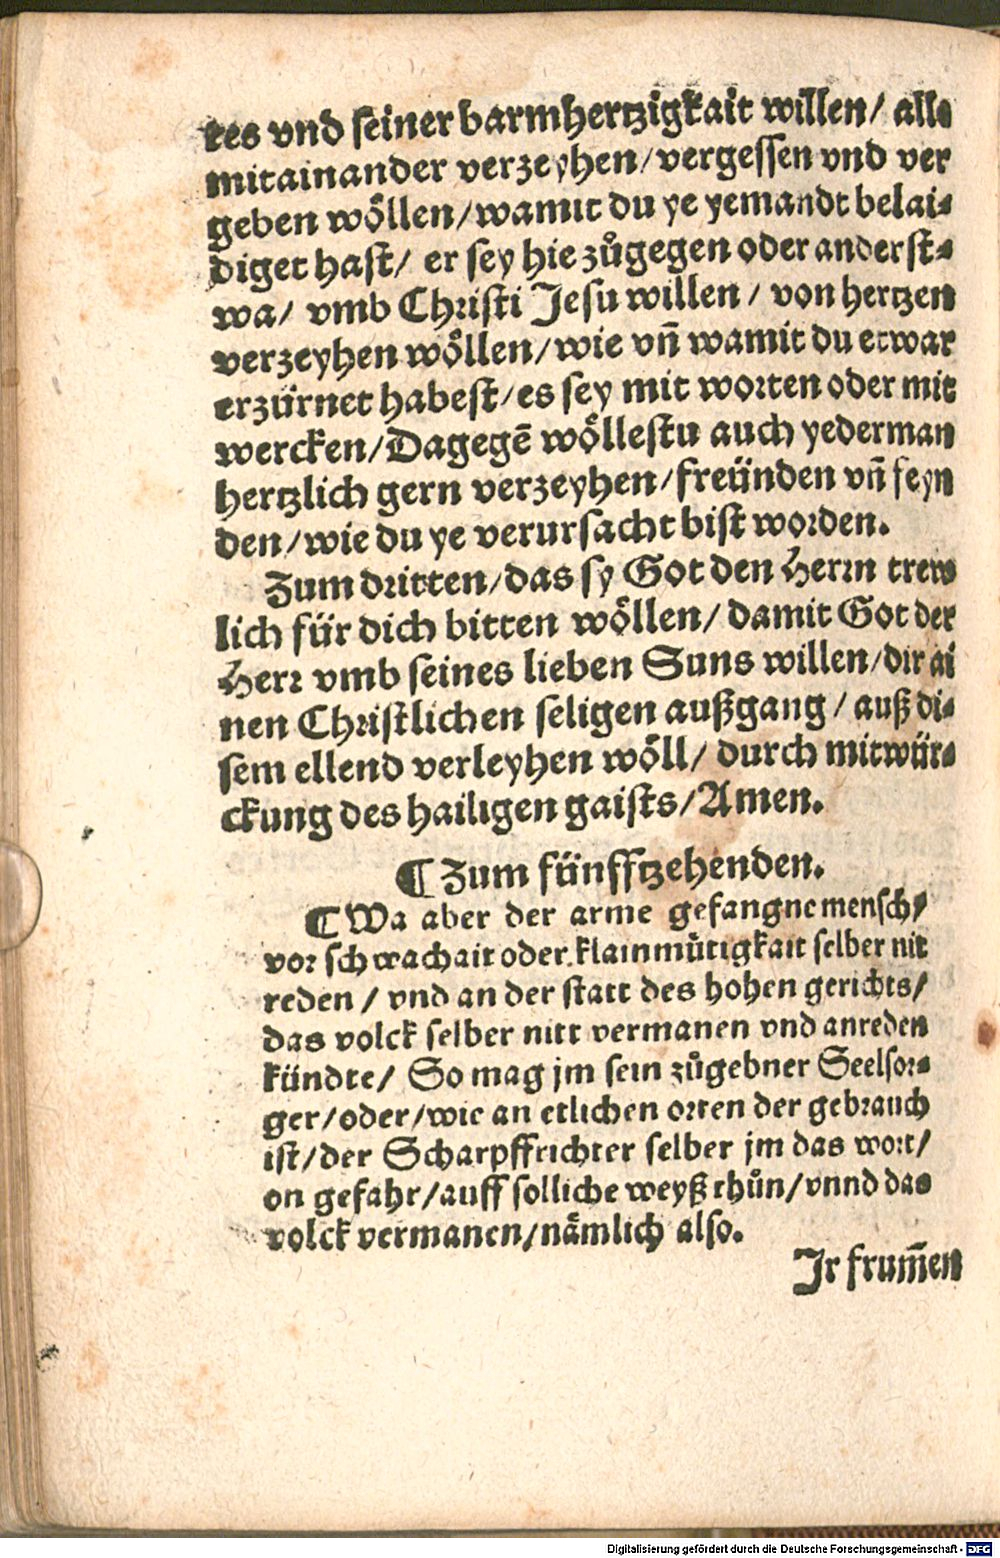 tes vnd seiner barmhertzigkait willen/ alle
mitainander verzeyhen/vergessen vnd ver
geben wöllen/wamit du ye yemandt belai⸗
diget hast/ er sey hie zůgegen oder anderst⸗
wa/ vmb Christi Jesu willen / von hertzen
verzeyhen wöllen/wie vñ wamit du etwar
erzürnet habest/es sey mit worten oder mit
wercken/Dagegē wöllestu auch yederman
hertzlich gern verzeyhen/freünden vñ feyn
den/wie du ye verursacht bist worden.
Zum dritten/das sy Got den Herrn trew
lich für dich bitten wöllen/ damit Got der
Herr vmb seines lieben Suns willen/dir ai
nen Christlichen seligen außgang/ auß di⸗
sem ellend verleyhen wöll/ durch mitwür⸗
ckung des hailigen gaists/Amen.
¶ Zum fünfftzehenden.
¶ Wa aber der arme gefangne mensch/
vor schwachait oder klainmůtigkait selber nit
reden / vnd an der statt des hohen gerichts/
das volck selber nitt vermanen vnd anreden
kündte/ So mag jm sein zůgebner Seelsor⸗
ger/oder/wie an etlichen orten der gebrauch
ist/der Scharpffrichter selber jm das wort/
on gefahr/auff solliche weyß thůn/vnnd das
volck vermanen/nämlich also.
Jr frum̃en
Digitalisierung gefördert durch die Deutsche Forschungsgemeinschaft - DFG